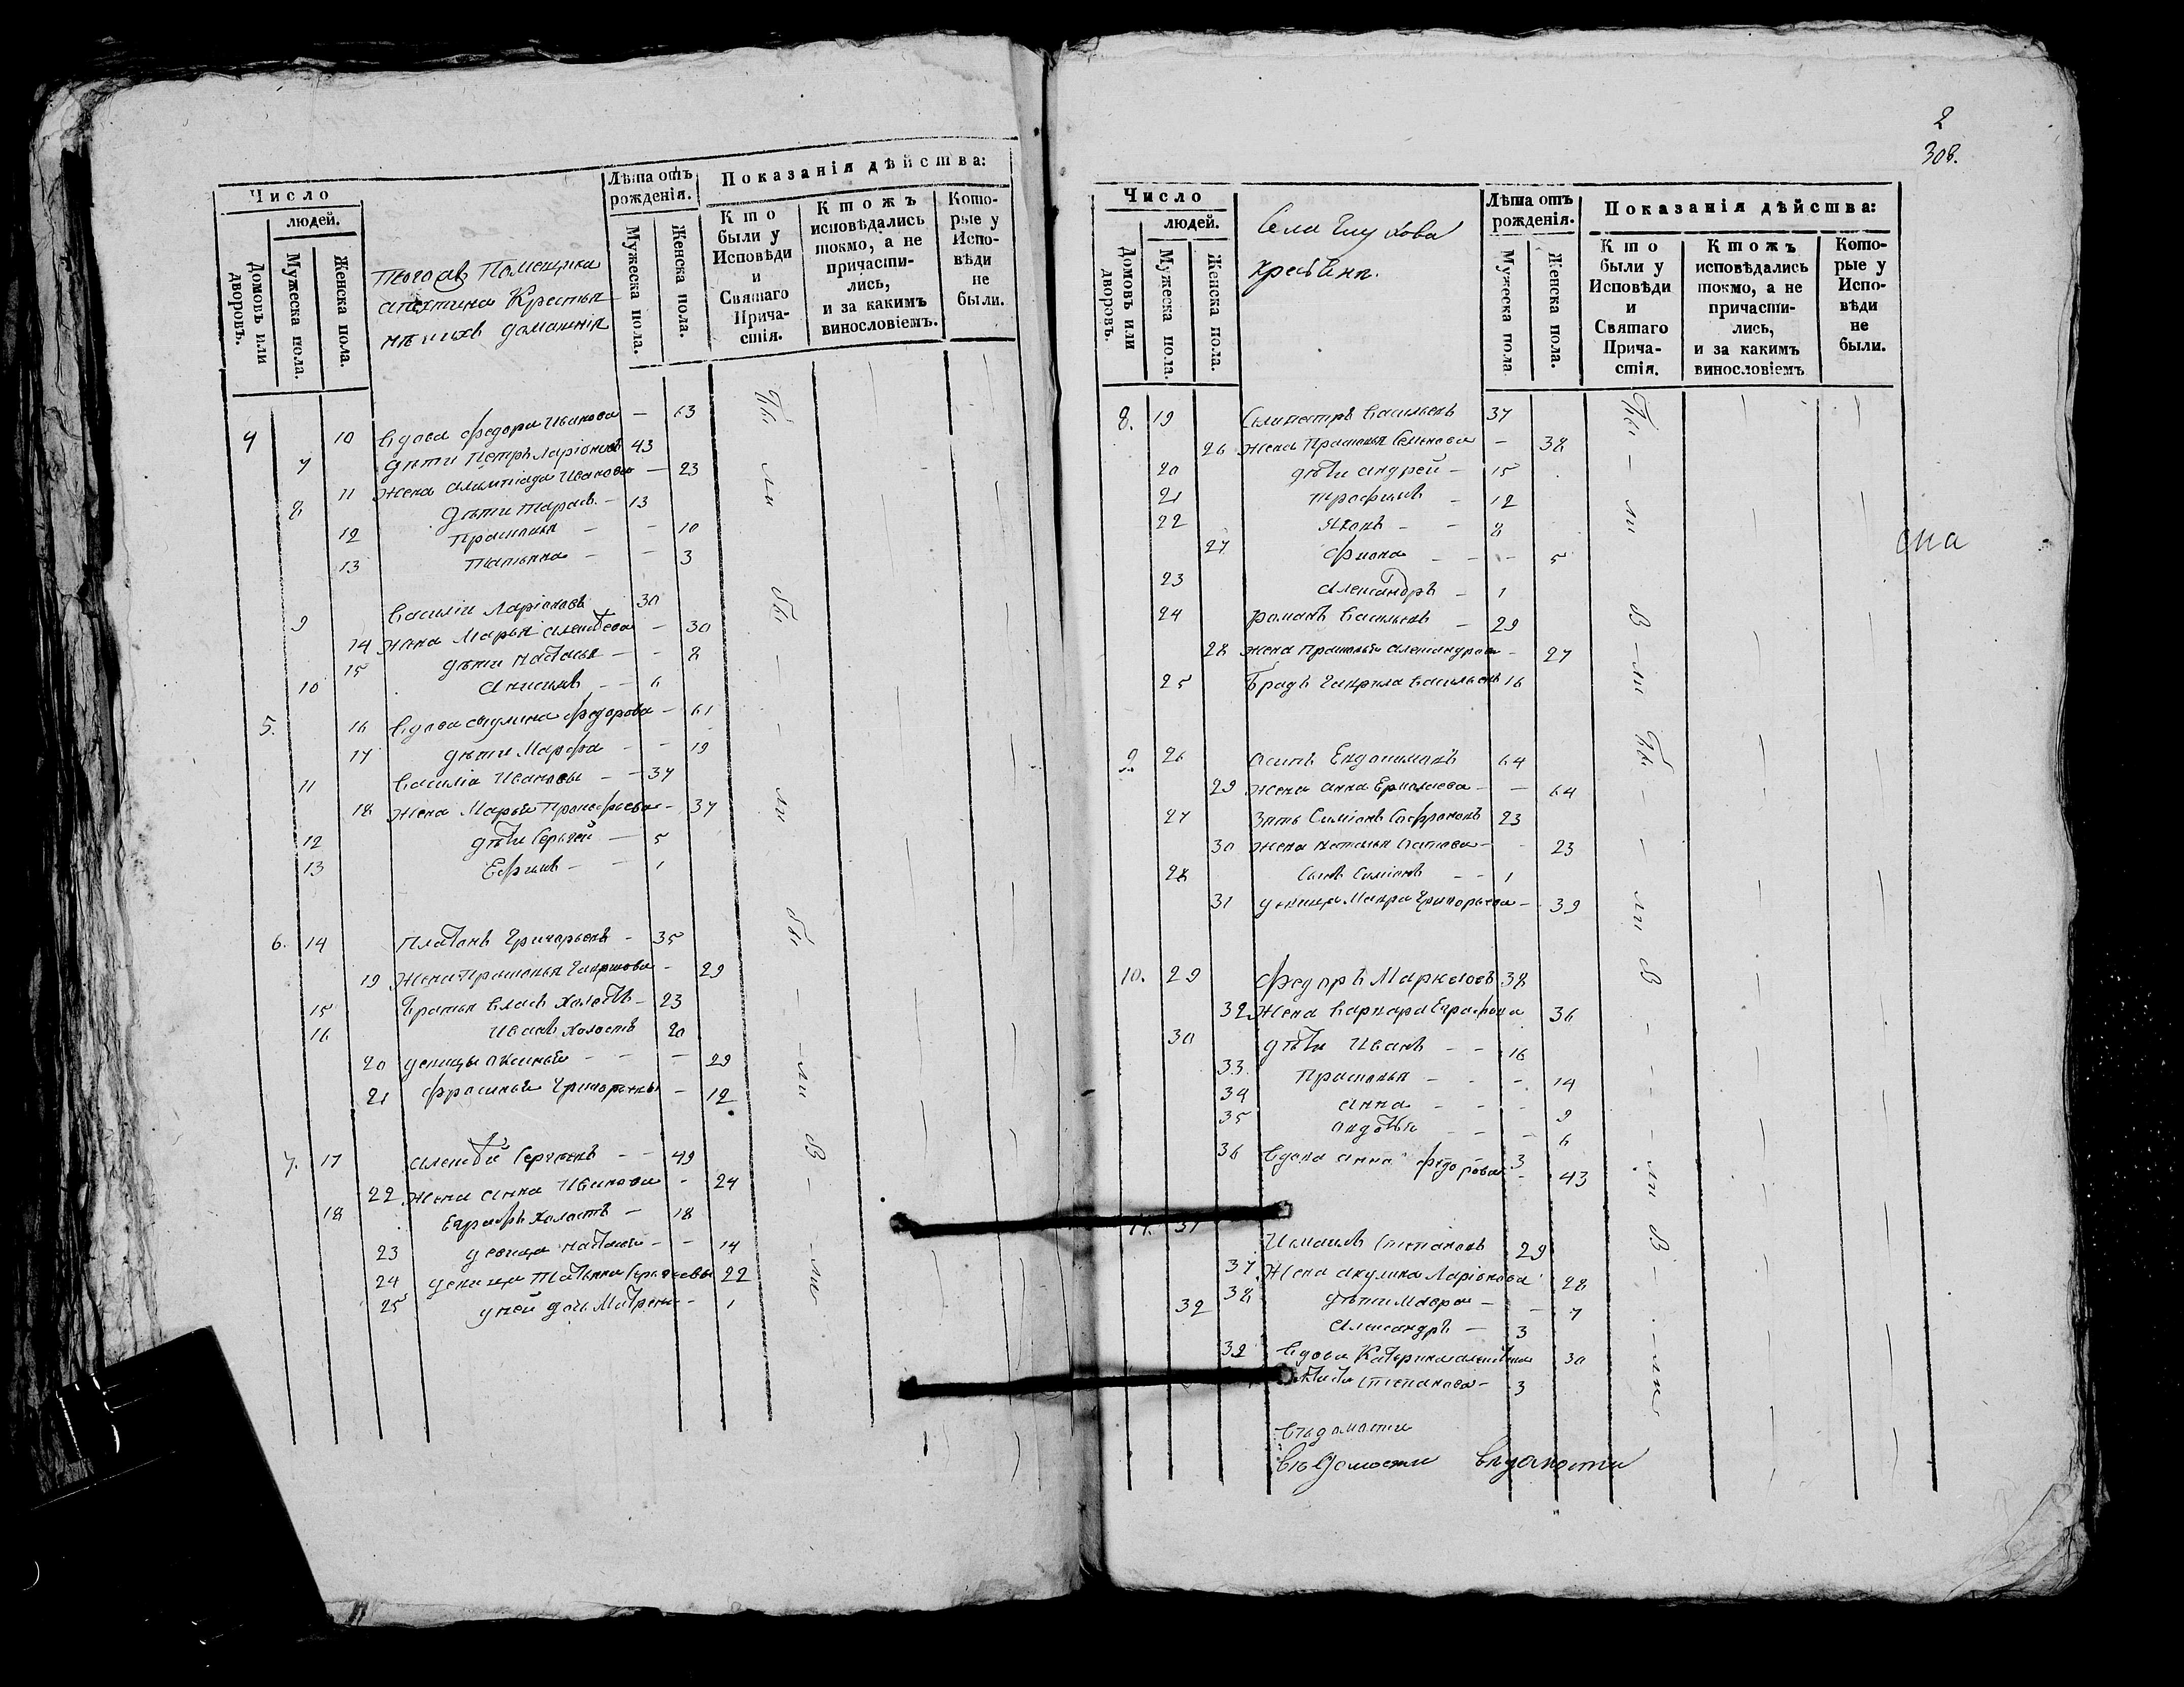 Число
людей.
Домовъ или дворовъ.
Мужеска пола.
Женска пола.
Помещика
Крестья
домашнія
Лѣта отъ рожденія.
Мужеска пола.
Женска пола.
Показанія дѣйства:
Кто были у Исповѣди и Святаго Причастія.
Ктожъ исповѣдались токмо, а не причастились, и за какимъ винословіемъ.
Которые у Исповѣди не были.
4 10 Вдова Федора Иванова — 63
7 дѣти Петръ Ларіоновъ 43
11 Жена Алимпіада Иванова — 23
8 дѣти Тарасъ — 13
12 Прасковья — — 10
13 Татьяна — — 3
9 Василіи Ларіоновъ 30
14 Жена Марья Алексѣева — 30
15 дѣти Настасья — — 8
10 Анисимъ — — 6
5. 16 Вдова Акулина Федорова — 61
17 дѣти Марфа — — 19
11 Василіи Ивановы — — 37
18 Жена Марья — 37
12 дѣти Сергѣй — 5
13 Ефимъ — — 1
6. 14 Платонъ Григорьевъ — 35
19 Жена Прасковья — 29
15 Братья Власъ Холостъ — 23
16 Иванъ Холостъ 20
20 девицы Аксинья — — — 29
21 Фросинья Григорьевы — 12
7. 17 Алексѣй Сергѣевъ — — 49
22 Жена Анна Иванова — 24
18 Евграфъ Холостъ — 18
23 девица Настасья — — 14
24 девица Татьяна Сергѣевы 22
25 у ней дочь Матрена — 1
бы — ли
бы — — ли
бы — ли
В — ли
2
308.
Число
людей.
Домовъ или дворовъ.
Мужеска пола.
Женска пола.
Села Глухова
крестьянъ.
Лѣта отъ рожденія.
Мужеска пола
Женска пола.
Показанія дѣйства:
Кто были у Исповѣди и Святаго Причастія.
Ктожъ исповѣдались токмо, а не причастились, и за какимъ винословіемъ
Которые у Исповѣди не были.
8. 19 Селиверстръ Васильевъ 37
26 Жена Прасковья Семенова — 38
20 дѣти Андрей — 15
21 Трофимъ — 12
22 Яковъ — — 8
27 Фиона — — — 5
23 Александръ — 1
24 Романъ Васильевъ — 29
28 Жена Прасковья Александрова — 27
25 Братъ Гаврила Васильевъ 16
9. 26 Осипъ Евдокимовъ 64
29 Жена Анна Ермолаева — — 64
27 Зять Симіонъ Софроновъ 23
30 Жена Наталья Осипова — — 23
28 Сынъ Симіонъ — — 1
31 девица Мавра Григорьева — 39
10. 29 Федоръ Маркеловъ 38
32 Жена Варвара Еграфова 36
30 дѣти Иванъ — — 16
33 Прасковья — — — 14
34 Анна — — — 9
35 Авдотья — — — 6
36 Вдова Анна Федорова 3 — 43
11. 31 Степановъ 29
37 Жена Акулина Ларіонова 28
38 дѣти Мавра — — 7
32 Александръ — 3
39 Вдова Катерина Алексѣева 30
Степанова — 3
бы — ли
В — ли
бы — — ли
В — — — ли
В — — ли
она
вѣдомости
Вѣдомости вѣдомости